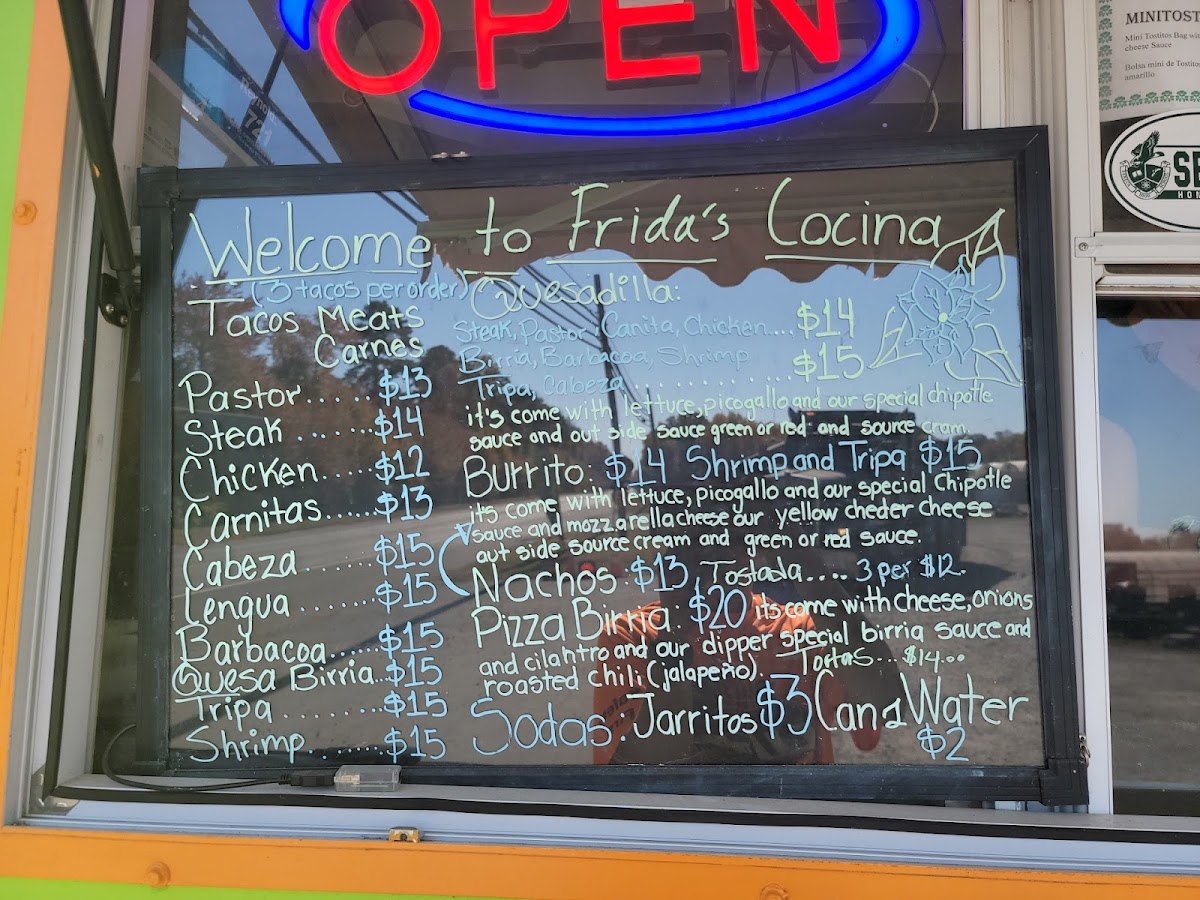 OPEN
MINITOST
Mini Tostitos Bag wit
cheese Sauce
Bolsa mini de Tostitos
amarillo
SE
Welcome to Frida's Cocina
(3 tacos per order)
Tacos Meats
Carnes
Pastor......$13
Steak.......$14
Chicken.....$12
Carnitas.....$13
Cabeza.......$15
Lengua.......$15
Barbacoa.....$15
Quesa Birria..$15
Tripa........$15
Shrimp.......$15
Quesadilla:
Steak, Pastor, Canita, Chicken....$14
Birria, Barbacoa, Shrimp $15
Tripa, Cabeza..............
it's come with lettuce, picogallo and our special chipotle
sauce and out side sauce green or red and source cram.
Burrito: $14 Shrimp and Tripa $15
it's come with lettuce, picogallo and our special Chipotle
sauce and mozzarella cheese our yellow cheder cheese
aut side source cream and green or red sauce.
Nachos $13, Tostada.... 3 per $12.
Pizza Birria: $20 its come with cheese, onions
and cilahtro and our dipper special birria sauce and
roasted chili (jalapeño). Tortas...$14.00
Sodas: Jarritos $3 Can & Water
$2